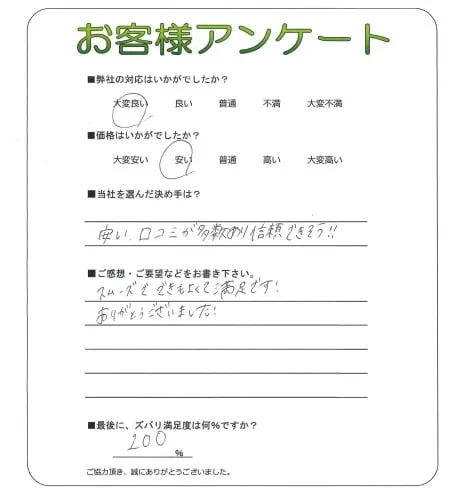 お客様アンケート
■弊社の対応はいかがでしたか？
大変良い 良い 普通 不満 大変不満
■価格はいかがでしたか？
大変安い 安い 普通 高い 大変高い
■当社を選んだ決め手は？
安い、口コミが多数あり信頼できそう!!
■ご感想・ご要望などをお書き下さい。
スムーズで、できもよくて満足です!
ありがとうございました!
■最後に、ズバリ満足度は何％ですか？
200 ％
ご協力頂き、誠にありがとうございました。